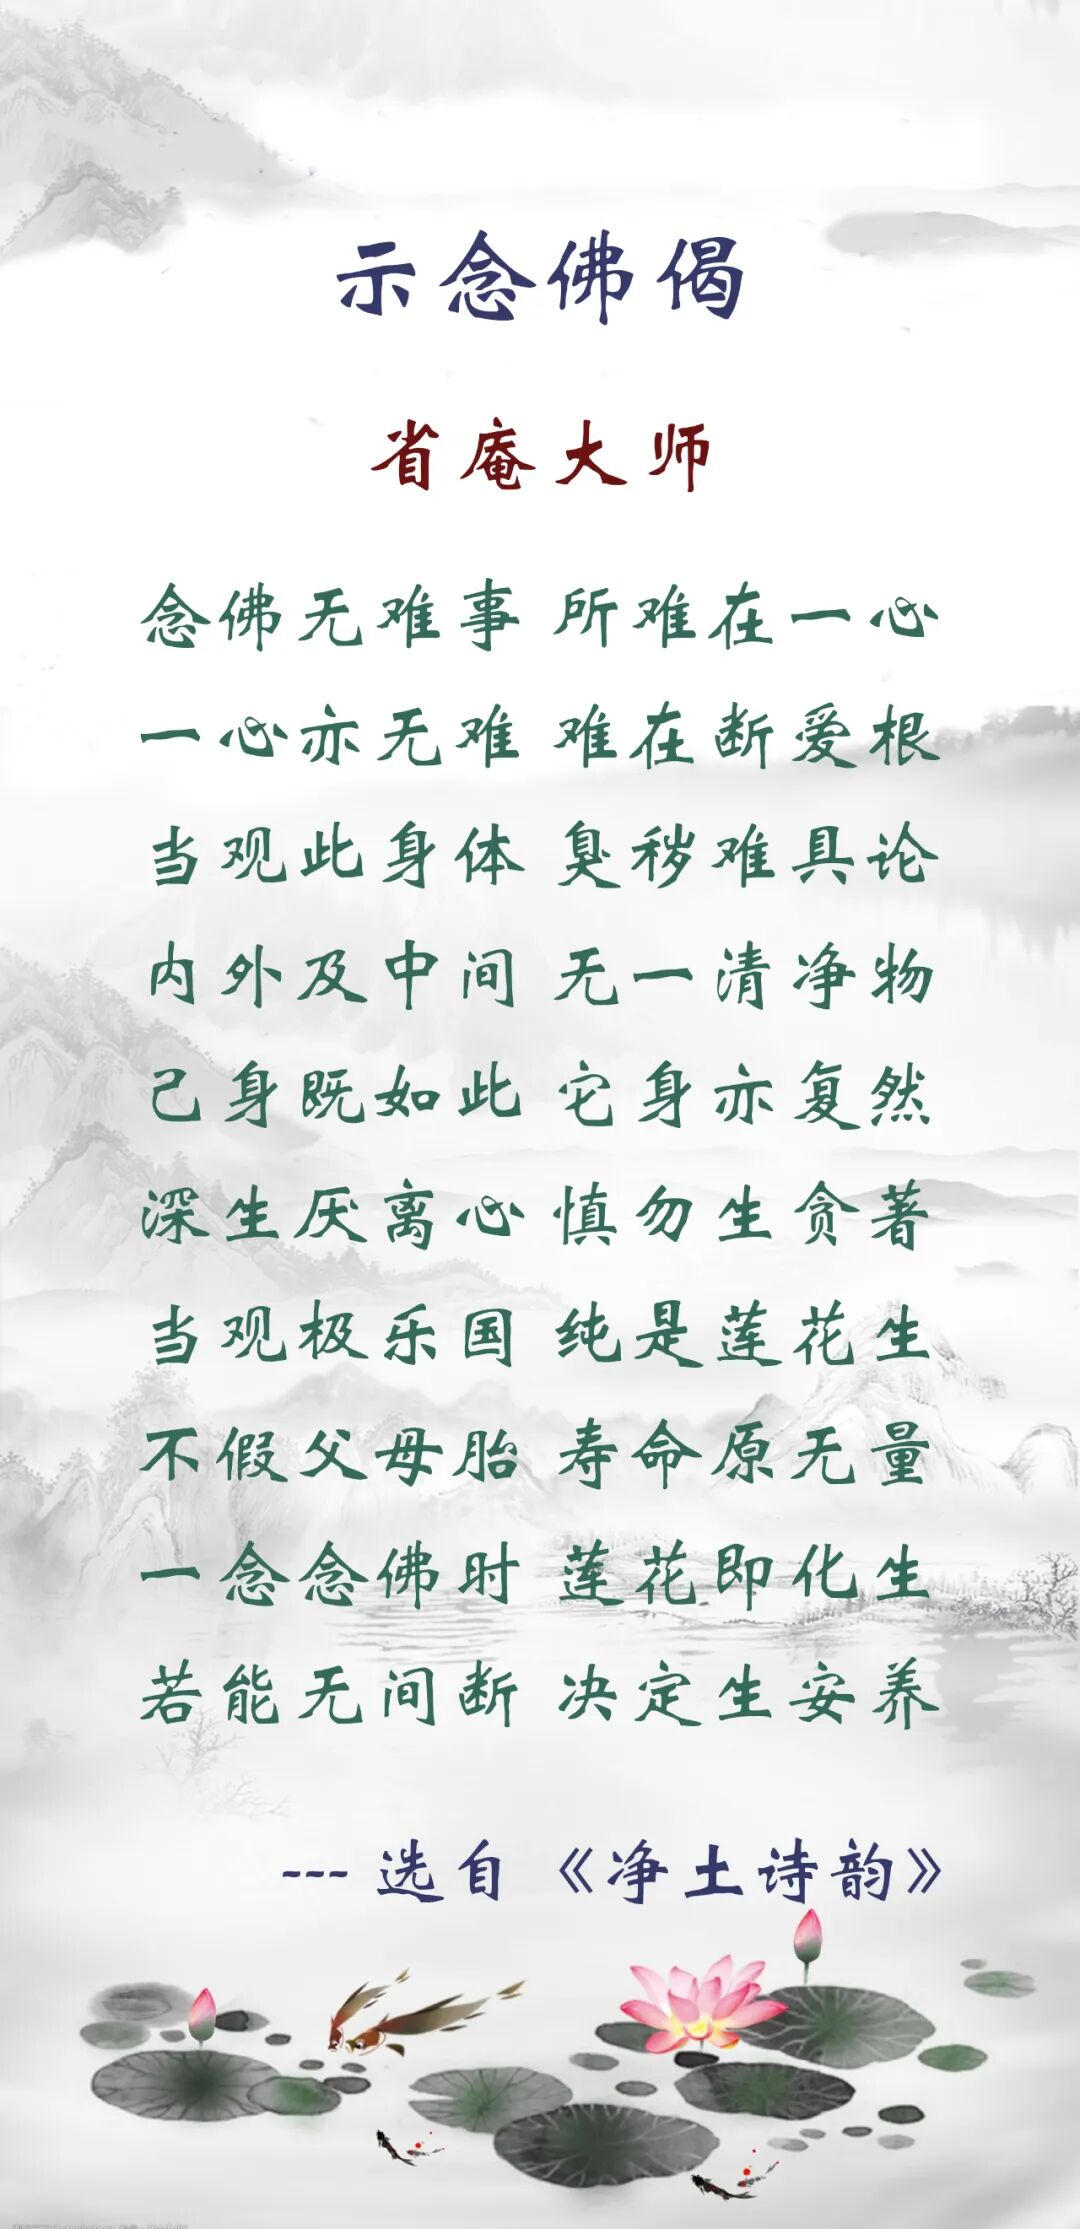 示念佛偈
省庵大师
念佛无难事 所难在一心
一心亦无难 难在断爱根
当观此身体 臭秽难具论
内外及中间 无一清净物
己身既如此 它身亦复然
深生厌离心 慎勿生贪著
当观极乐国 纯是莲花生
不假父母胎 寿命原无量
一念念佛时 莲花即化生
若能无间断 决定生安养
--- 选自《净土诗韵》